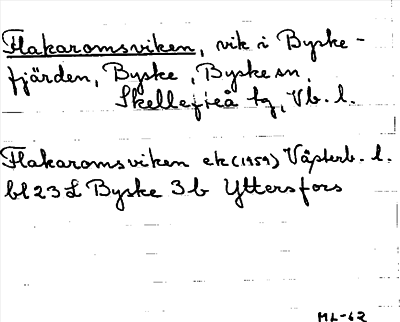 Flakaromsviken, vik i Byske-
fjärden, Byske, Byske sn,
Skellefteå tg, Vb. l.
Flakaromsviken ek (1959) Västerb. l.
bl 23 L Byske 3 b Yttersfors
ML-62